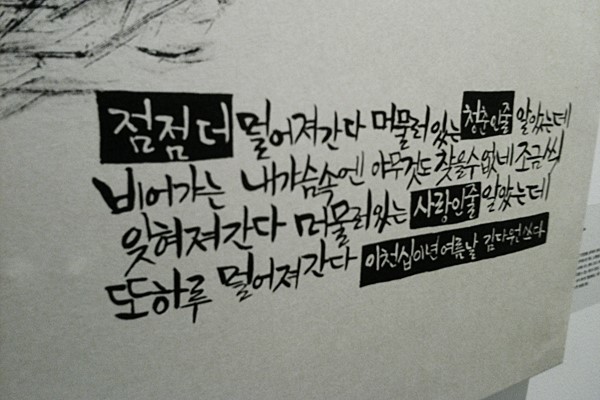 점점 더 멀어져간다 머물러 있는 청춘인줄 알았는데
비어가는 내가슴속엔 아무것도 찾을수 없네 조금씩
잊혀져간다 머물러있는 사랑인줄 알았는데
또하루 멀어져간다 이천십이년 여름날 김다원 쓰다